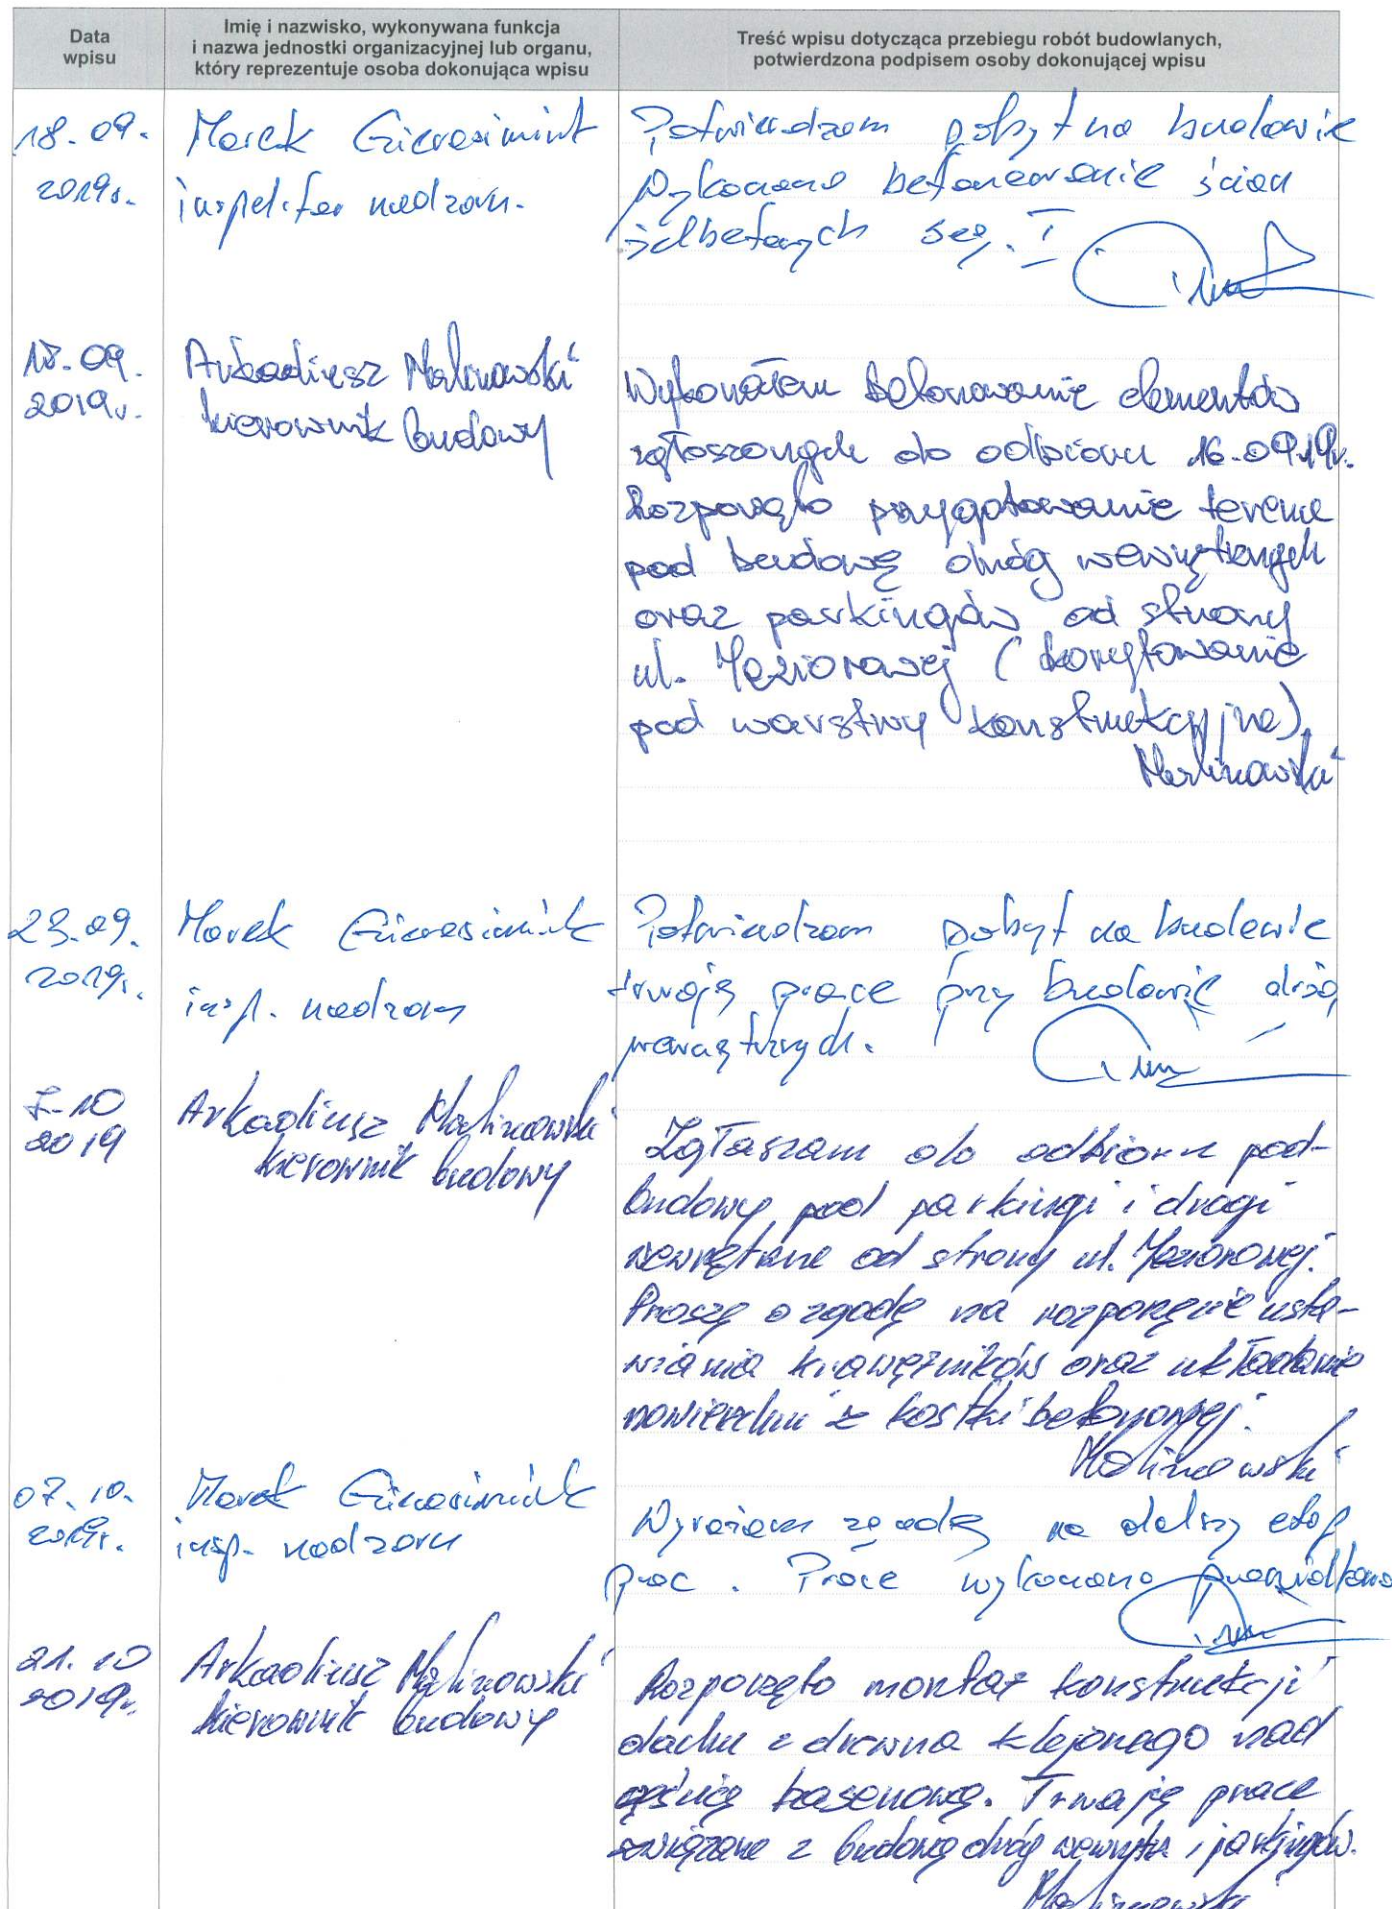 Data
wpisu
Imię i nazwisko, wykonywana funkcja
i nazwa jednostki organizacyjnej lub organu,
który reprezentuje osoba dokonująca wpisu
Treść wpisu dotycząca przebiegu robót budowlanych,
potwierdzona podpisem osoby dokonującej wpisu
18.09.
2019r.
Marek
inspektor nadzoru.
Potwierdzam pobyt na budowie
Wykonano betonowanie ścian
żelbetowych seg. I
18.09.
2019r.
Arkadiusz Malinowski
kierownik budowy
Wykonałem betonowanie elementów
zgłoszonych do odbioru 16.09.19r.
Rozpoczęto przygotowanie terenu
pod budowę dróg wewnętrznych
oraz parkingów od strony
ul. Jeziorowej (korytowanie
pod warstwy konstrukcyjne).
Malinowski
23.09.
2019r.
Marek
insp. nadzoru
Potwierdzam pobyt na budowie
trwają prace przy budowie dróg
wewnętrznych.
7.10
2019
Arkadiusz Malinowski
kierownik budowy
Zgłaszam do odbioru pod-
budowy pod parkingi i drogi
wewnętrzne od strony ul. Jeziorowej.
Proszę o zgodę na rozpoczęcie usta-
wiania krawężników oraz układanie
nawierzchni z kostki betonowej.
Malinowski
07.10.
2019r.
Marek
insp. nadzoru
Wyrażam zgodę na dalszy etap
prac. Prace wykonano prawidłowo
21.10
2019r.
Arkadiusz Malinowski
kierownik budowy
Rozpoczęto montaż konstrukcji
dachu z drewna klejonego nad
częścią basenową. Trwają prace
związane z budową dróg wewnętrz i parkingów.
Malinowski